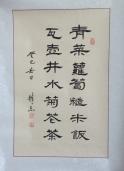 青菜蘿蔔糙米飯
瓦壺井水菊花茶
癸巳